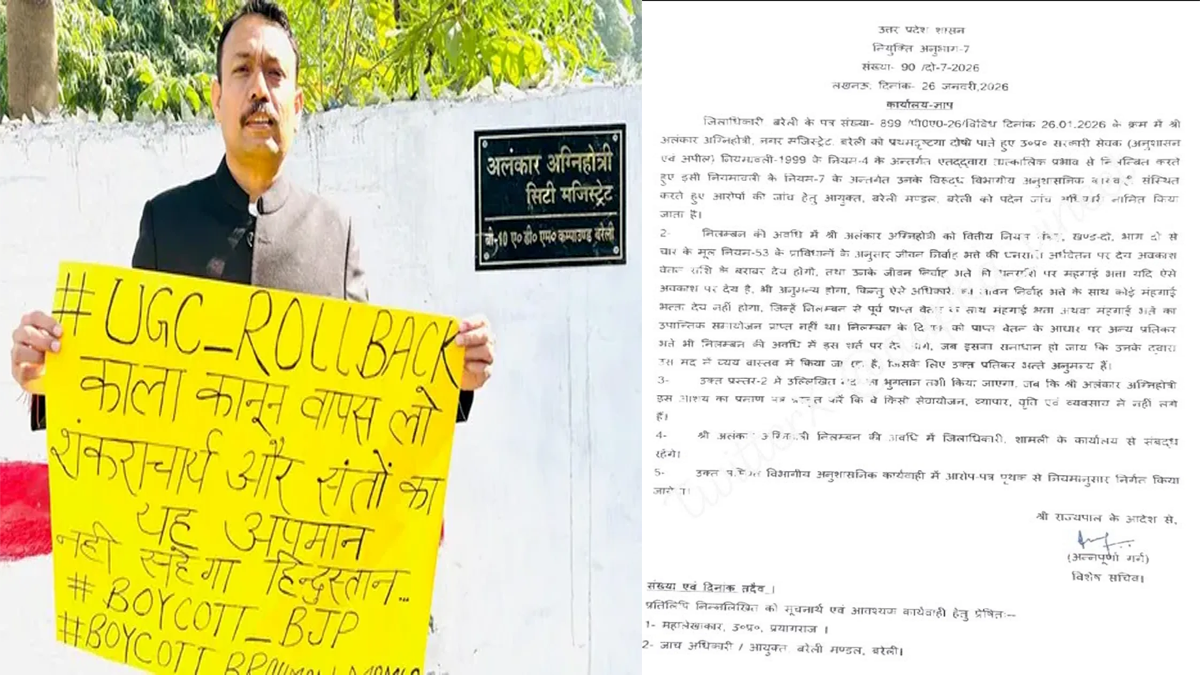 #UGC_ROLLBACK
काला कानून वापस लो
शंकराचार्य और संतों का
यह अपमान
नही सहेगा हिन्दुस्तान...
#BOYCOTT_BJP
#BOYCOTT
अलंकार अग्निहोत्री
सिटी मजिस्ट्रेट
बी-10 ए० डी० एम० कम्पाउण्ड बरेली
उत्तर प्रदेश शासन
नियुक्ति अनुभाग-7
संख्या- 90 /दो-7-2026
लखनऊ, दिनांक- 26 जनवरी,2026
कार्यालय-ज्ञाप
जिलाधिकारी, बरेली के पत्र संख्या- 899 /पी0ए0-26/विविध दिनांक 26.01.2026 के क्रम में श्री
अलंकार अग्निहोत्री, नगर मजिस्ट्रेट, बरेली को प्रथमदृष्टया दोषी पाते हुए उ0प्र0 सरकारी सेवक (अनुशासन
एवं अपील) नियमावली-1999 के नियम-4 के अन्तर्गत एतद्द्वारा तात्कालिक प्रभाव से निलम्बित करते
हुए इसी नियमावली के नियम-7 के अन्तर्गत उनके विरूद्ध विभागीय अनुशासनिक संस्थित
करते हुए आरोपों की जांच हेतु आयुक्त, बरेली मण्डल, बरेली को पदेन जांच अधिकारी नामित किया
जाता है।
2- निलम्बन की अवधि में श्री अलंकार अग्निहोत्री को वित्तीय नियम खण्ड-दो, भाग दो से
चार के मूल नियम-53 के प्राविधानों के अनुसार जीवन निर्वाह भत्ते की धनराशि अर्धवेतन पर देय अवकाश
वेतन राशि के बराबर देय होगी, तथा उनके जीवन निर्वाह भत्ते की धनराशि पर महंगाई भत्ता यदि ऐसे
अवकाश पर देय है, भी अनुमन्य होगा, किन्तु ऐसे अधिकारी को जीवन निर्वाह भत्ते के साथ कोई मंहगाई
भत्ता देय नहीं होगा, जिन्हें निलम्बन से पूर्व प्राप्त वेतन के साथ महंगाई भत्ता अथवा महंगाई भत्ते का
उपान्तिक समायोजन प्राप्त नहीं था। निलम्बन के दिनांक को प्राप्त वेतन के आधार पर अन्य प्रतिकर
भत्ते भी निलम्बन की अवधि में इस शर्त पर देय होंगे, जब इसका समाधान हो जाय कि उनके द्वारा
उस मद में व्यय वास्तव में किया जा रहा है, जिसके लिए उक्त प्रतिकर भत्ते अनुमन्य हैं।
3- उक्त प्रस्तर-2 में उल्लिखित मदों का भुगतान तभी किया जाएगा, जब कि श्री अलंकार अग्निहोत्री
इस आशय का प्रमाण पत्र प्रस्तुत करें कि वे किसी सेवायोजन, व्यापार, वृति एवं व्यवसाय में नहीं लगे
हैं।
4- श्री अलंकार अग्निहोत्री निलम्बन की अवधि में जिलाधिकारी, शामली के कार्यालय से संबद्ध
रहेंगे।
5- उक्त विभागीय अनुशासनिक कार्यवाही में आरोप-पत्र पृथक से नियमानुसार निर्गत किया
जायेगा।
श्री राज्यपाल के आदेश से,
(अन्नपूर्णा गर्ग)
विशेष सचिव।
संख्या एवं दिनांक तदैव।
प्रतिलिपि निम्नलिखित को सूचनार्थ एवं आवश्यक कार्यवाही हेतु प्रेषितः--
1- महालेखाकार, उ0प्र0, प्रयागराज ।
2- जांच अधिकारी / आयुक्त बरेली मण्डल, बरेली।